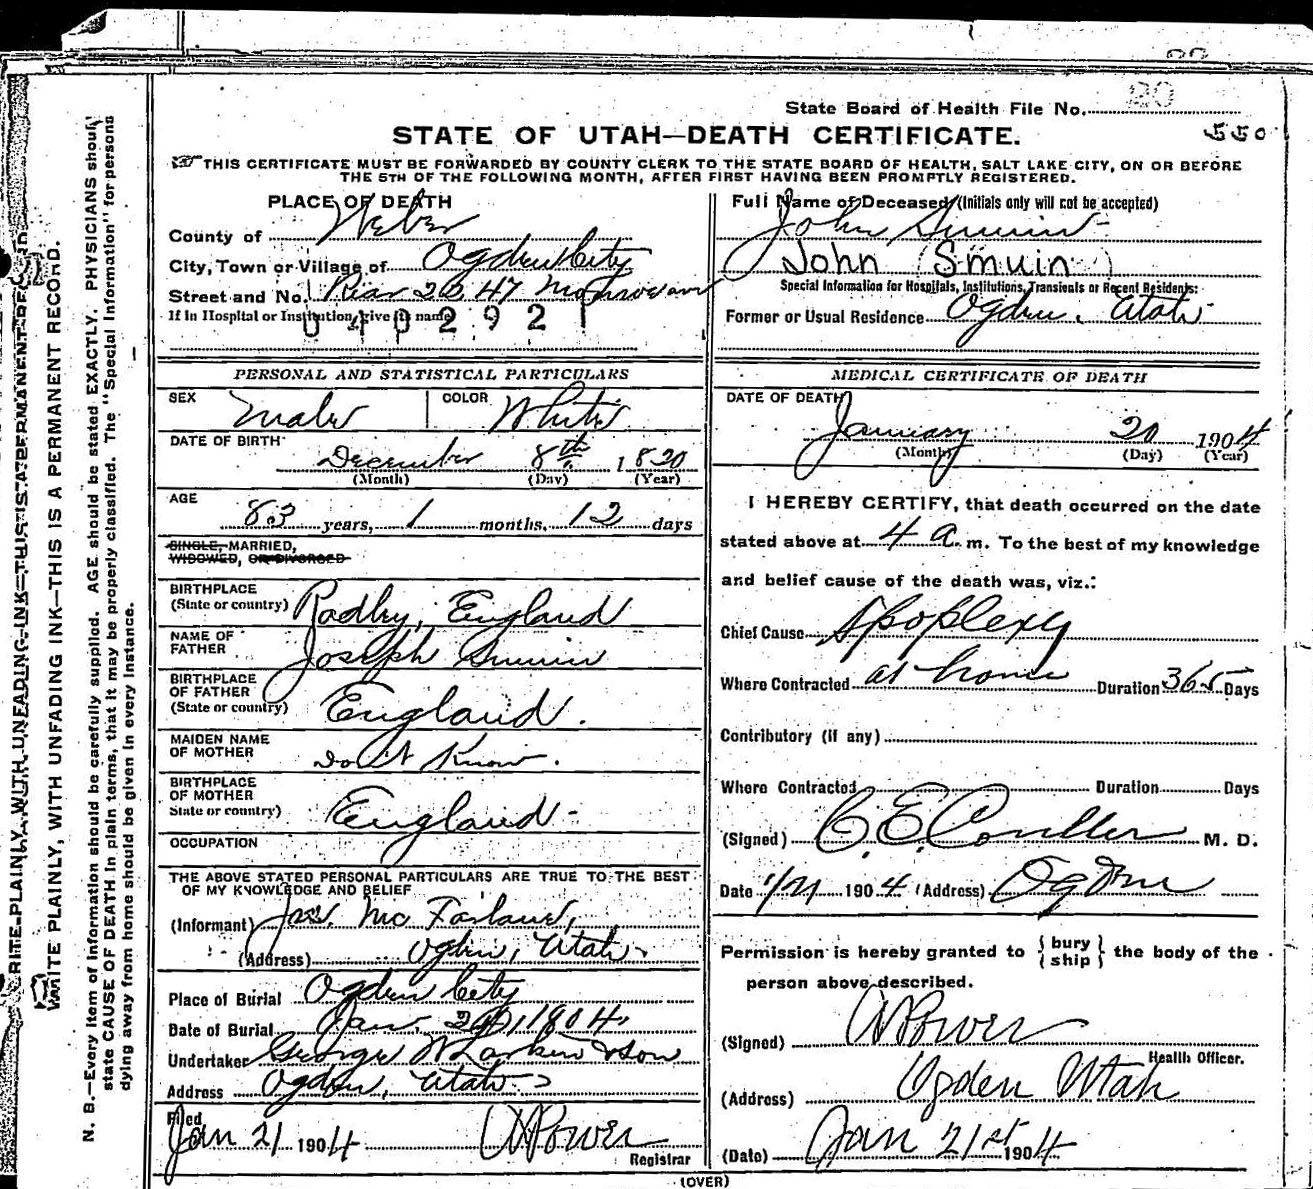 State Board of Health File No. 20
STATE OF UTAH—DEATH CERTIFICATE.
550
THIS CERTIFICATE MUST BE FORWARDED BY COUNTY CLERK TO THE STATE BOARD OF HEALTH, SALT LAKE CITY, ON OR BEFORE
THE 5TH OF THE FOLLOWING MONTH, AFTER FIRST HAVING BEEN PROMPTLY REGISTERED.
PLACE OF DEATH
County of Weber
City, Town or Village of Ogden City
Street and No. Rear 2347 Monroe ave
If in Hospital or Institution, give its name
0410292 1
Full Name of Deceased (Initials only will not be accepted)
John Smuin
John (Smuin)
Special Information for Hospitals, Institutions, Transients or Recent Residents:
Former or Usual Residence Ogden, Utah
PERSONAL AND STATISTICAL PARTICULARS
SEX Male COLOR White
DATE OF BIRTH
December 8th 1820
(Month) (Day) (Year)
AGE
83 years, 1 months, 12 days
SINGLE, MARRIED,
WIDOWED, OR DIVORCED
BIRTHPLACE
(State or country) Radley, England
NAME OF
FATHER Joseph Smuin
BIRTHPLACE
OF FATHER
(State or country) England.
MAIDEN NAME
OF MOTHER Don't Know.
BIRTHPLACE
OF MOTHER
State or country) England
OCCUPATION
THE ABOVE STATED PERSONAL PARTICULARS ARE TRUE TO THE BEST
OF MY KNOWLEDGE AND BELIEF
(Informant) Jas. McFarland,
(Address) Ogden, Utah
Place of Burial Ogden City
Date of Burial Jan, 1904,
Undertaker George W Larkin & Son
Address Ogden, Utah
Filed
Jan 21 1904 Power
Registrar
MEDICAL CERTIFICATE OF DEATH
DATE OF DEATH
January 20 1904
(Month) (Day) (Year)
I HEREBY CERTIFY, that death occurred on the date
stated above at 4 a. m. To the best of my knowledge
and belief cause of the death was, viz.:
Chief Cause Apoplexy
Where Contracted at home Duration 365 Days
Contributory (if any)
Where Contracted Duration Days
(Signed) C. E. Coulter M. D.
Date 1/21 1904 (Address) Ogden
Permission is hereby granted to {bury ship} the body of the
person above described.
(Signed) Power
Health Officer.
(Address) Ogden Utah
(Date) Jan 21st 1904
(OVER)
WRITE PLAINLY, WITH UNFADING INK—THIS IS A PERMANENT RECORD.
WRITE PLAINLY, WITH UNFADING INK—THIS IS A PERMANENT RECORD.
N. B.—Every item of information should be carefully supplied. AGE should be stated EXACTLY. PHYSICIANS should
state CAUSE OF DEATH in plain terms, that it may be properly classified. The "Special Information" for persons
dying away from home should be given in every instance.